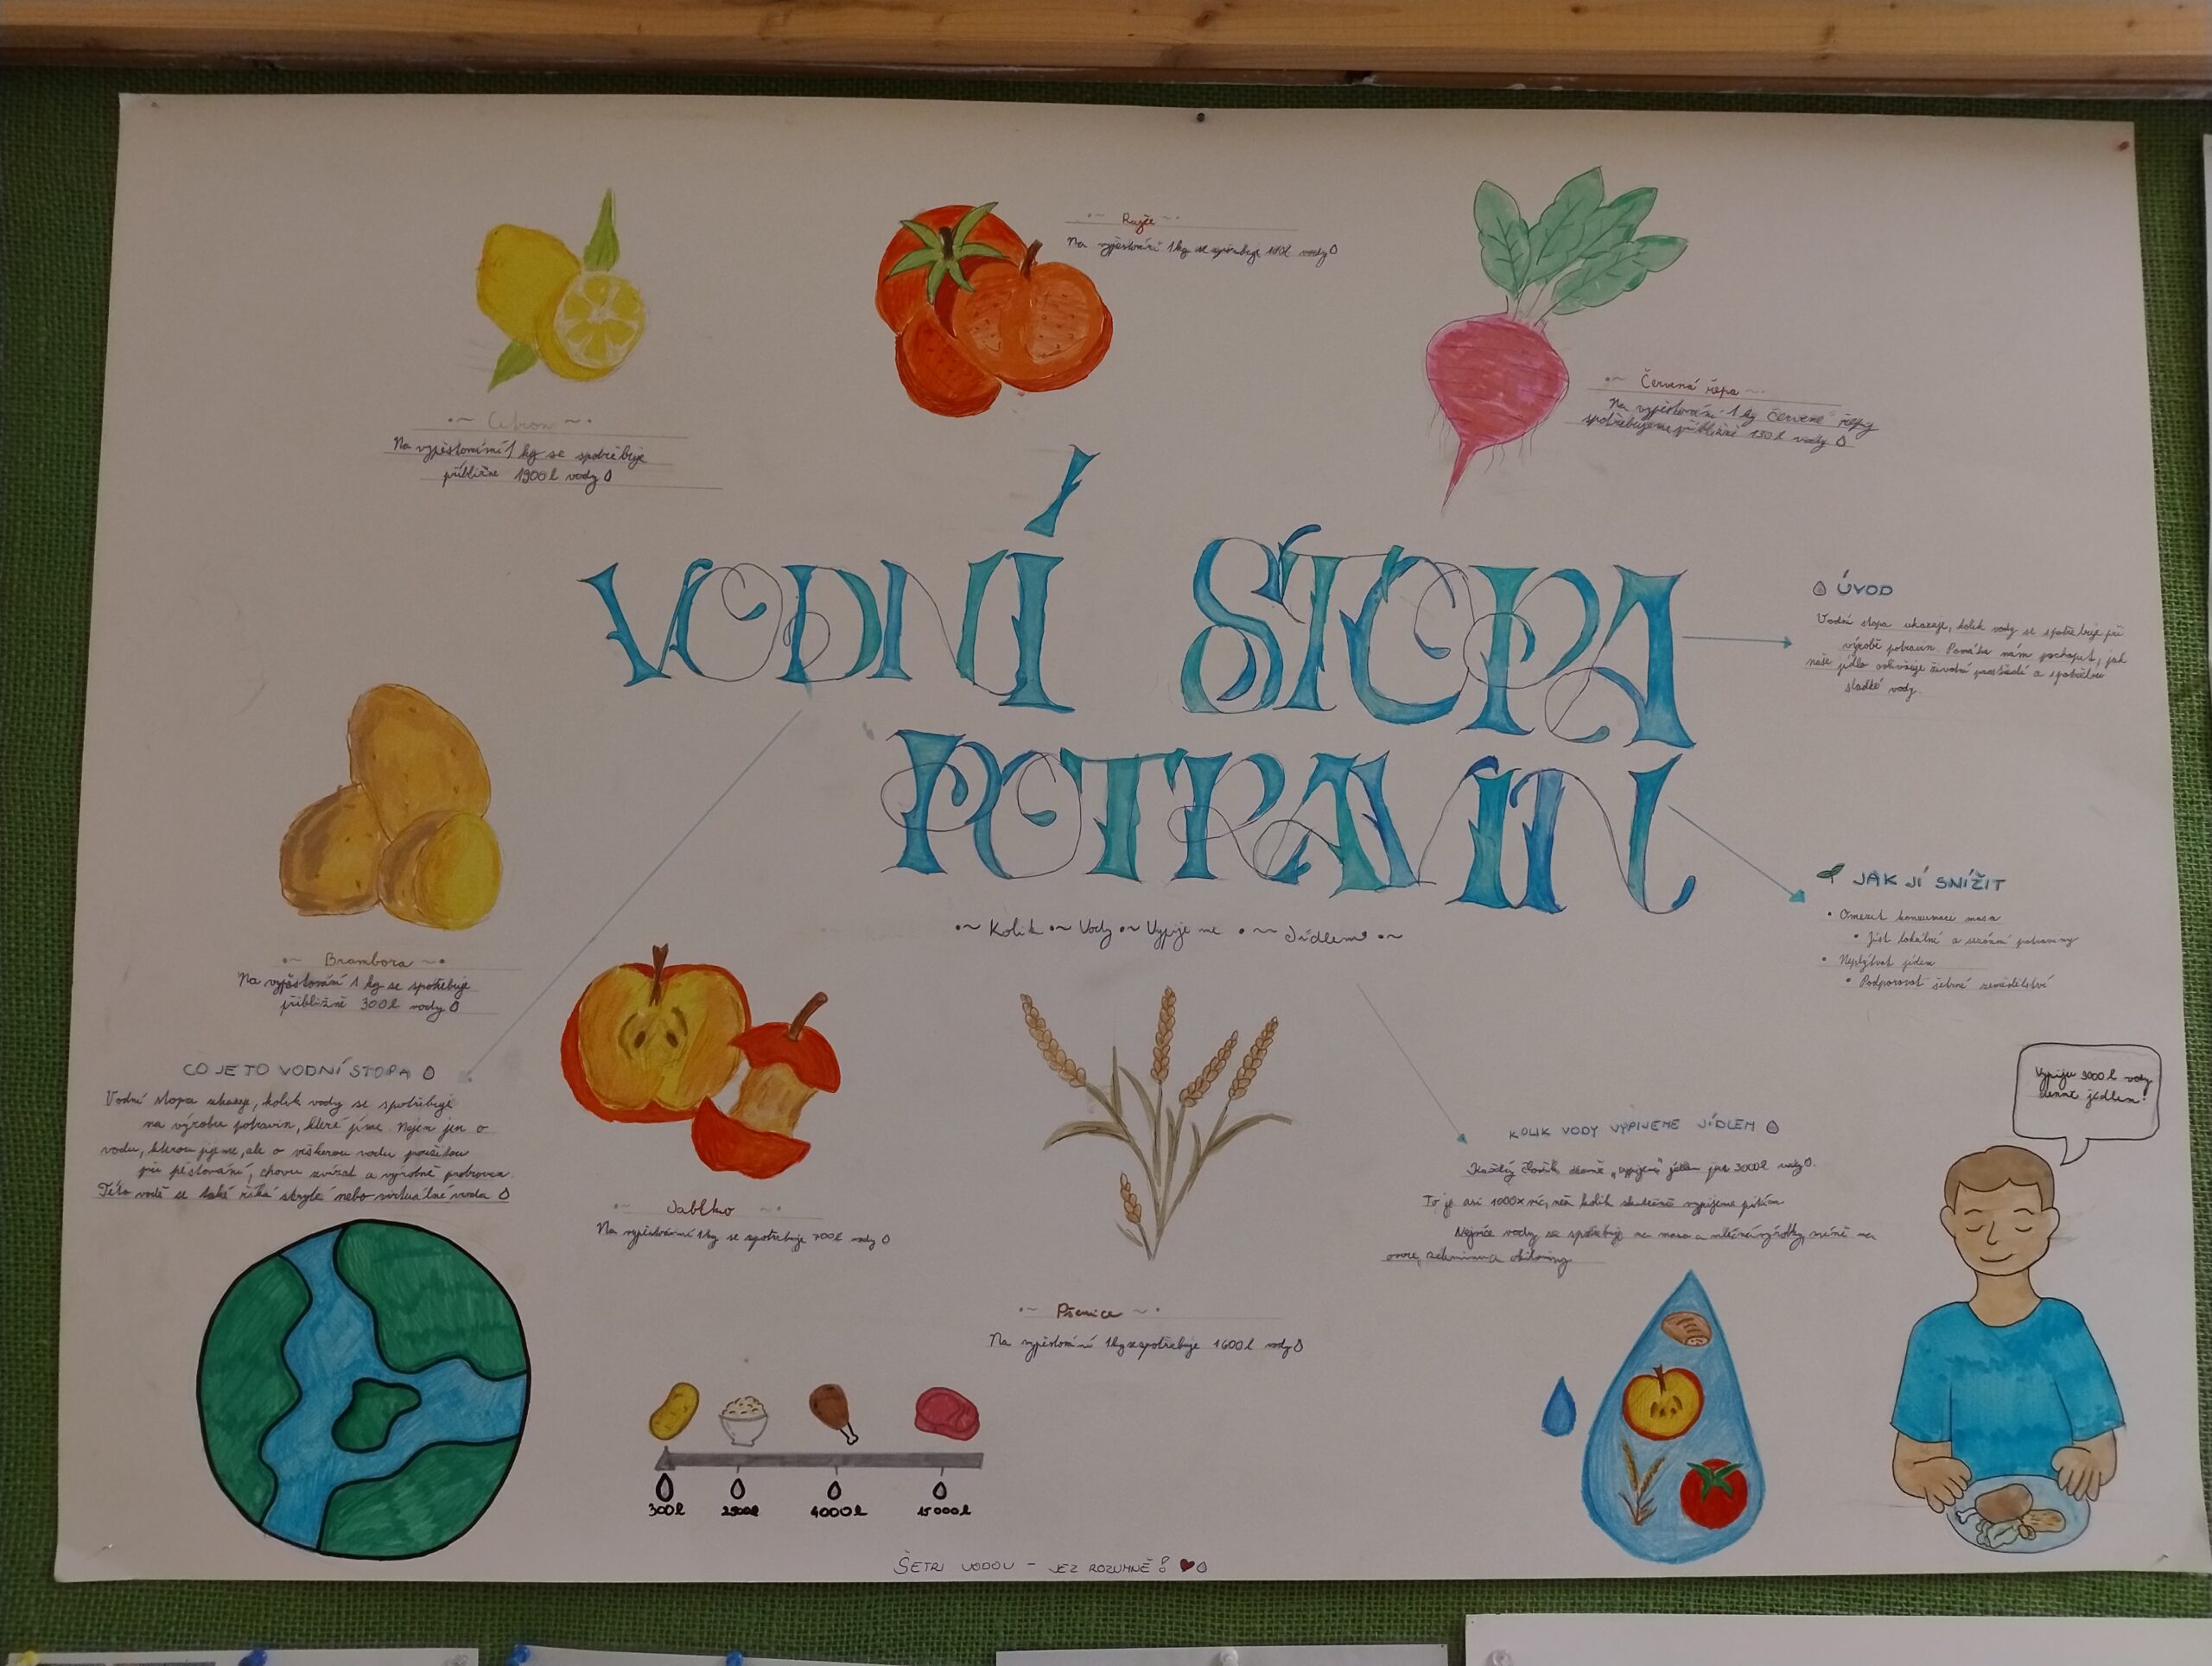 ~ Citron ~
Na vypěstování 1 kg se spotřebuje
přibližne 1900l vody
~ Rajče ~
Na vypěstování 1kg se spotřebuje vody
~ Červená řepa ~
Na vypěstování 1 kg červené řepy
spotřebujeme přibližně 130l vody
VODNÍ STOPA
POTRAVIN
~ Kolik ~ Vody ~ Vypijeme ~ Jídlem ~
ÚVOD
Vodní stopa ukazuje, kolik vody se spotřebuje při
výrobě potravin. Pomáhá nám pochopit, jak
naše jídlo ovlivňuje životní prostředí a spotřebou
sladké vody.
JAK JÍ SNÍŽIT
• Omezit konzumaci masa
• Jíst lokální a sezóní potraviny
• Neplýtvat jídlem
• Podporovat šetrné zemědělství
~ Brambora ~
Na vypěstování 1 kg se spotřebuje
přibližně 300l vody
CO JE TO VODNÍ STOPA
Vodní stopa ukazuje, kolik vody se spotřebuje
na výrobu potravin, které jíme. Nejen jen o
vodu, kterou pijeme, ale o veškerou vodu použitou
při pěstování, chovu zvířat a výrobně potravin.
Této vodě se také říká skrytá nebo virtuální voda
~ Jablko ~
Na vypěstování 1kg se spotřebuje 700l vody
~ Pšenice ~
Na vypěstování 1kg se spotřebuje 1600l vody
KOLIK VODY VYPIJEME JÍDLEM
Každý člověk denně „vypije" jídlem jas 3000l vody.
To je asi 1000x víc, než kolik skutečně vypijeme pitím
Nejvíce vody se spotřebuje na maso a mléčné výrobky, méně na
ovoce, zeleninu a obilniny
Vypiju 3000l vody
denně jídlem!
300l 2500l 4000l 15000l
ŠETRI VODOU - JEZ ROZUMNĚ!